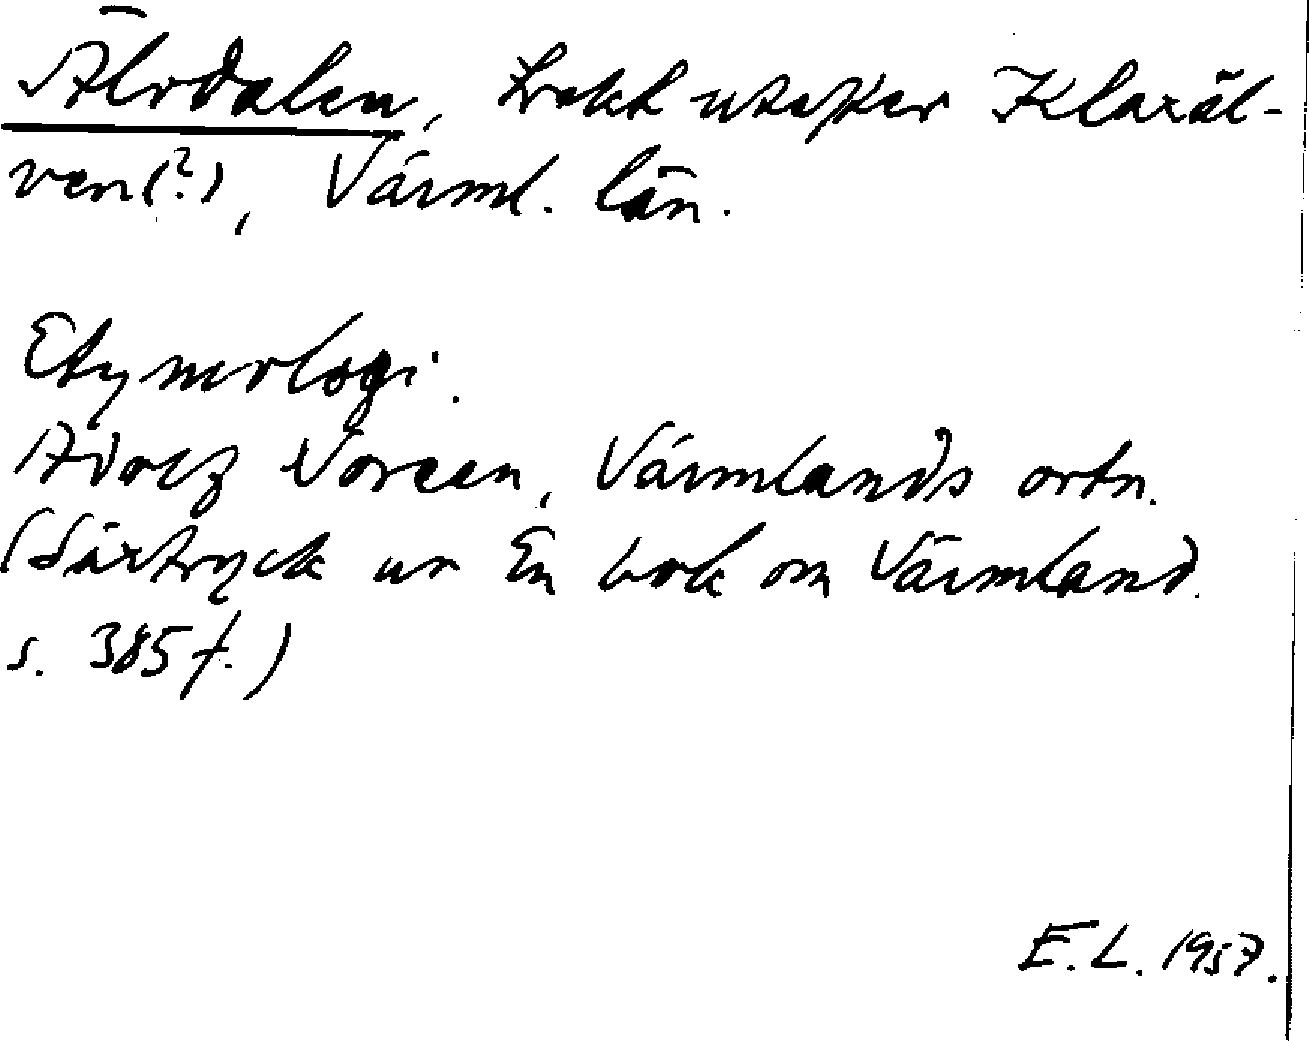 Älvdalen, trakt utefter Klaräl-
ven(?), Värml. län.
Etymologi.
Adolf Noreen, Värmlands ortn.
(Särtryck ur En bok om Värmland.
s. 385 f.)
E. L. 1957.